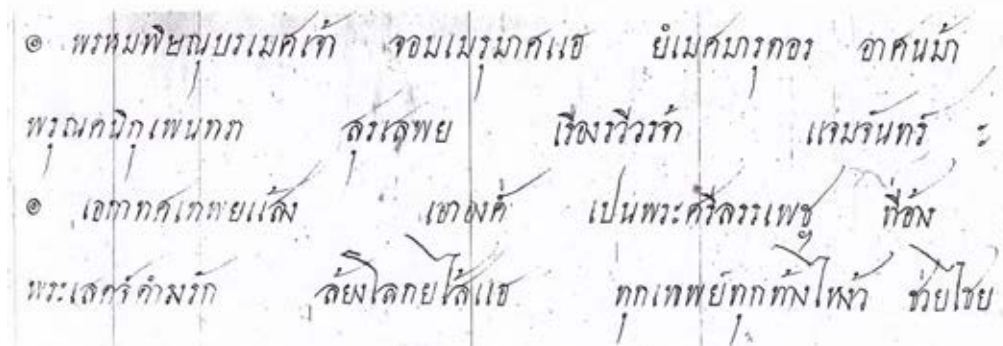 ๏ พรหมพิษณุบรเมศเจ้า จอมเมรุมาศแฮ ยำเมศมารุตอร อาศนม้า
พรุณคนิกุเพนทรา สุรเสพย เรืองรวีวรจ้า แจ่มจันทร์ ะ
๏ เอกาทศเทพยแส้ง เอาองค์ เปนพระศรีสรรเพชญ ที่อ้าง
พระเสด็จดำรงรักษ ล้ยงโลกยไส้แฮ ทุกเทพย์ทุกท้าวไหงว้ ช่วยไชย